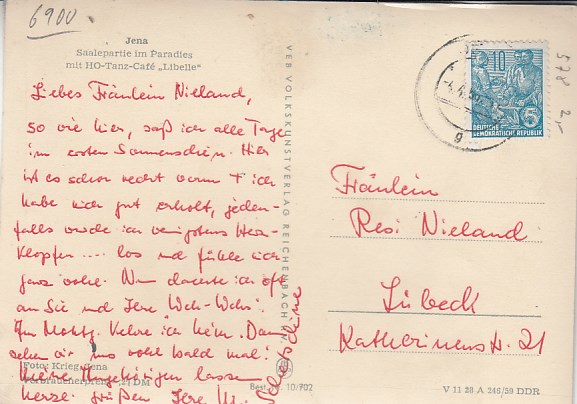 6900
Jena
Saalepartie im Paradies
mit HO-Tanz-Café „Libelle“
Liebes Fräulein Nieland,
so wie hier, saß ich alle Tage
im ersten Sonnenschein. Hier
ist es schon recht warm + ich
habe mich gut erholt, jeden-
falls wurde ich wenigstens Herz-
klopfen .... los und fühle mich
ganz wohl. Nun dachte ich oft
an Sie und Ihre Weh-Wehs.
Am Montg. kehre ich heim. Dann
sehen wir uns wohl bald mal!
Meine Angehörigen lassen
herzl. grüßen Ihre
Foto: Krieg, Jena
Verbraucherpreis 0,21 DM
Best. 10/702
VEB VOLKSKUNSTVERLAG REICHENBACH
10
5
DEUTSCHE
DEMOKRATISCHE REPUBLIK
g
578 2,-
Fräulein
Resi Nieland
Lübeck
Katharinenstr. 21
V 11 28 A 246/59 DDR